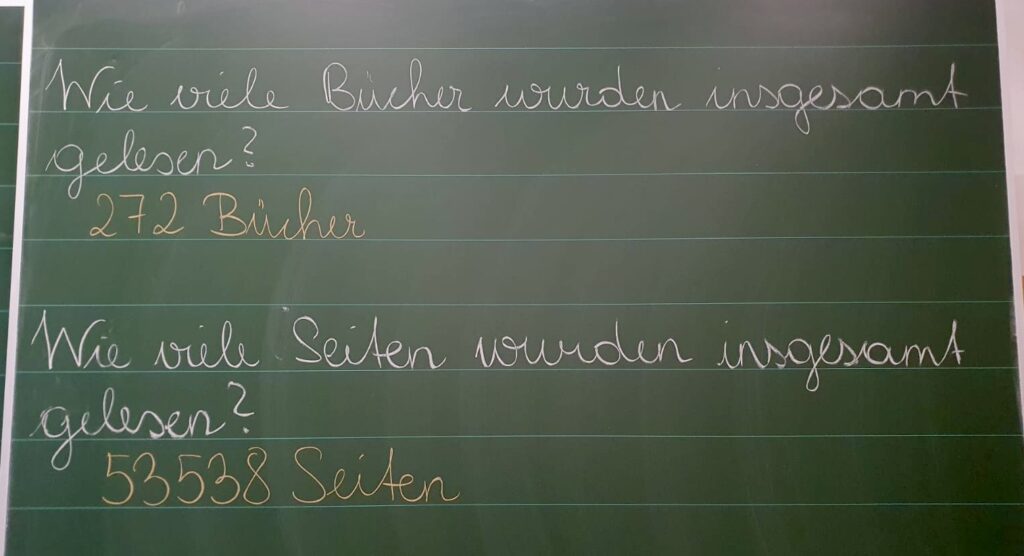 Wie viele Bücher wurden insgesamt
gelesen?
272 Bücher
Wie viele Seiten wurden insgesamt
gelesen?
53538 Seiten